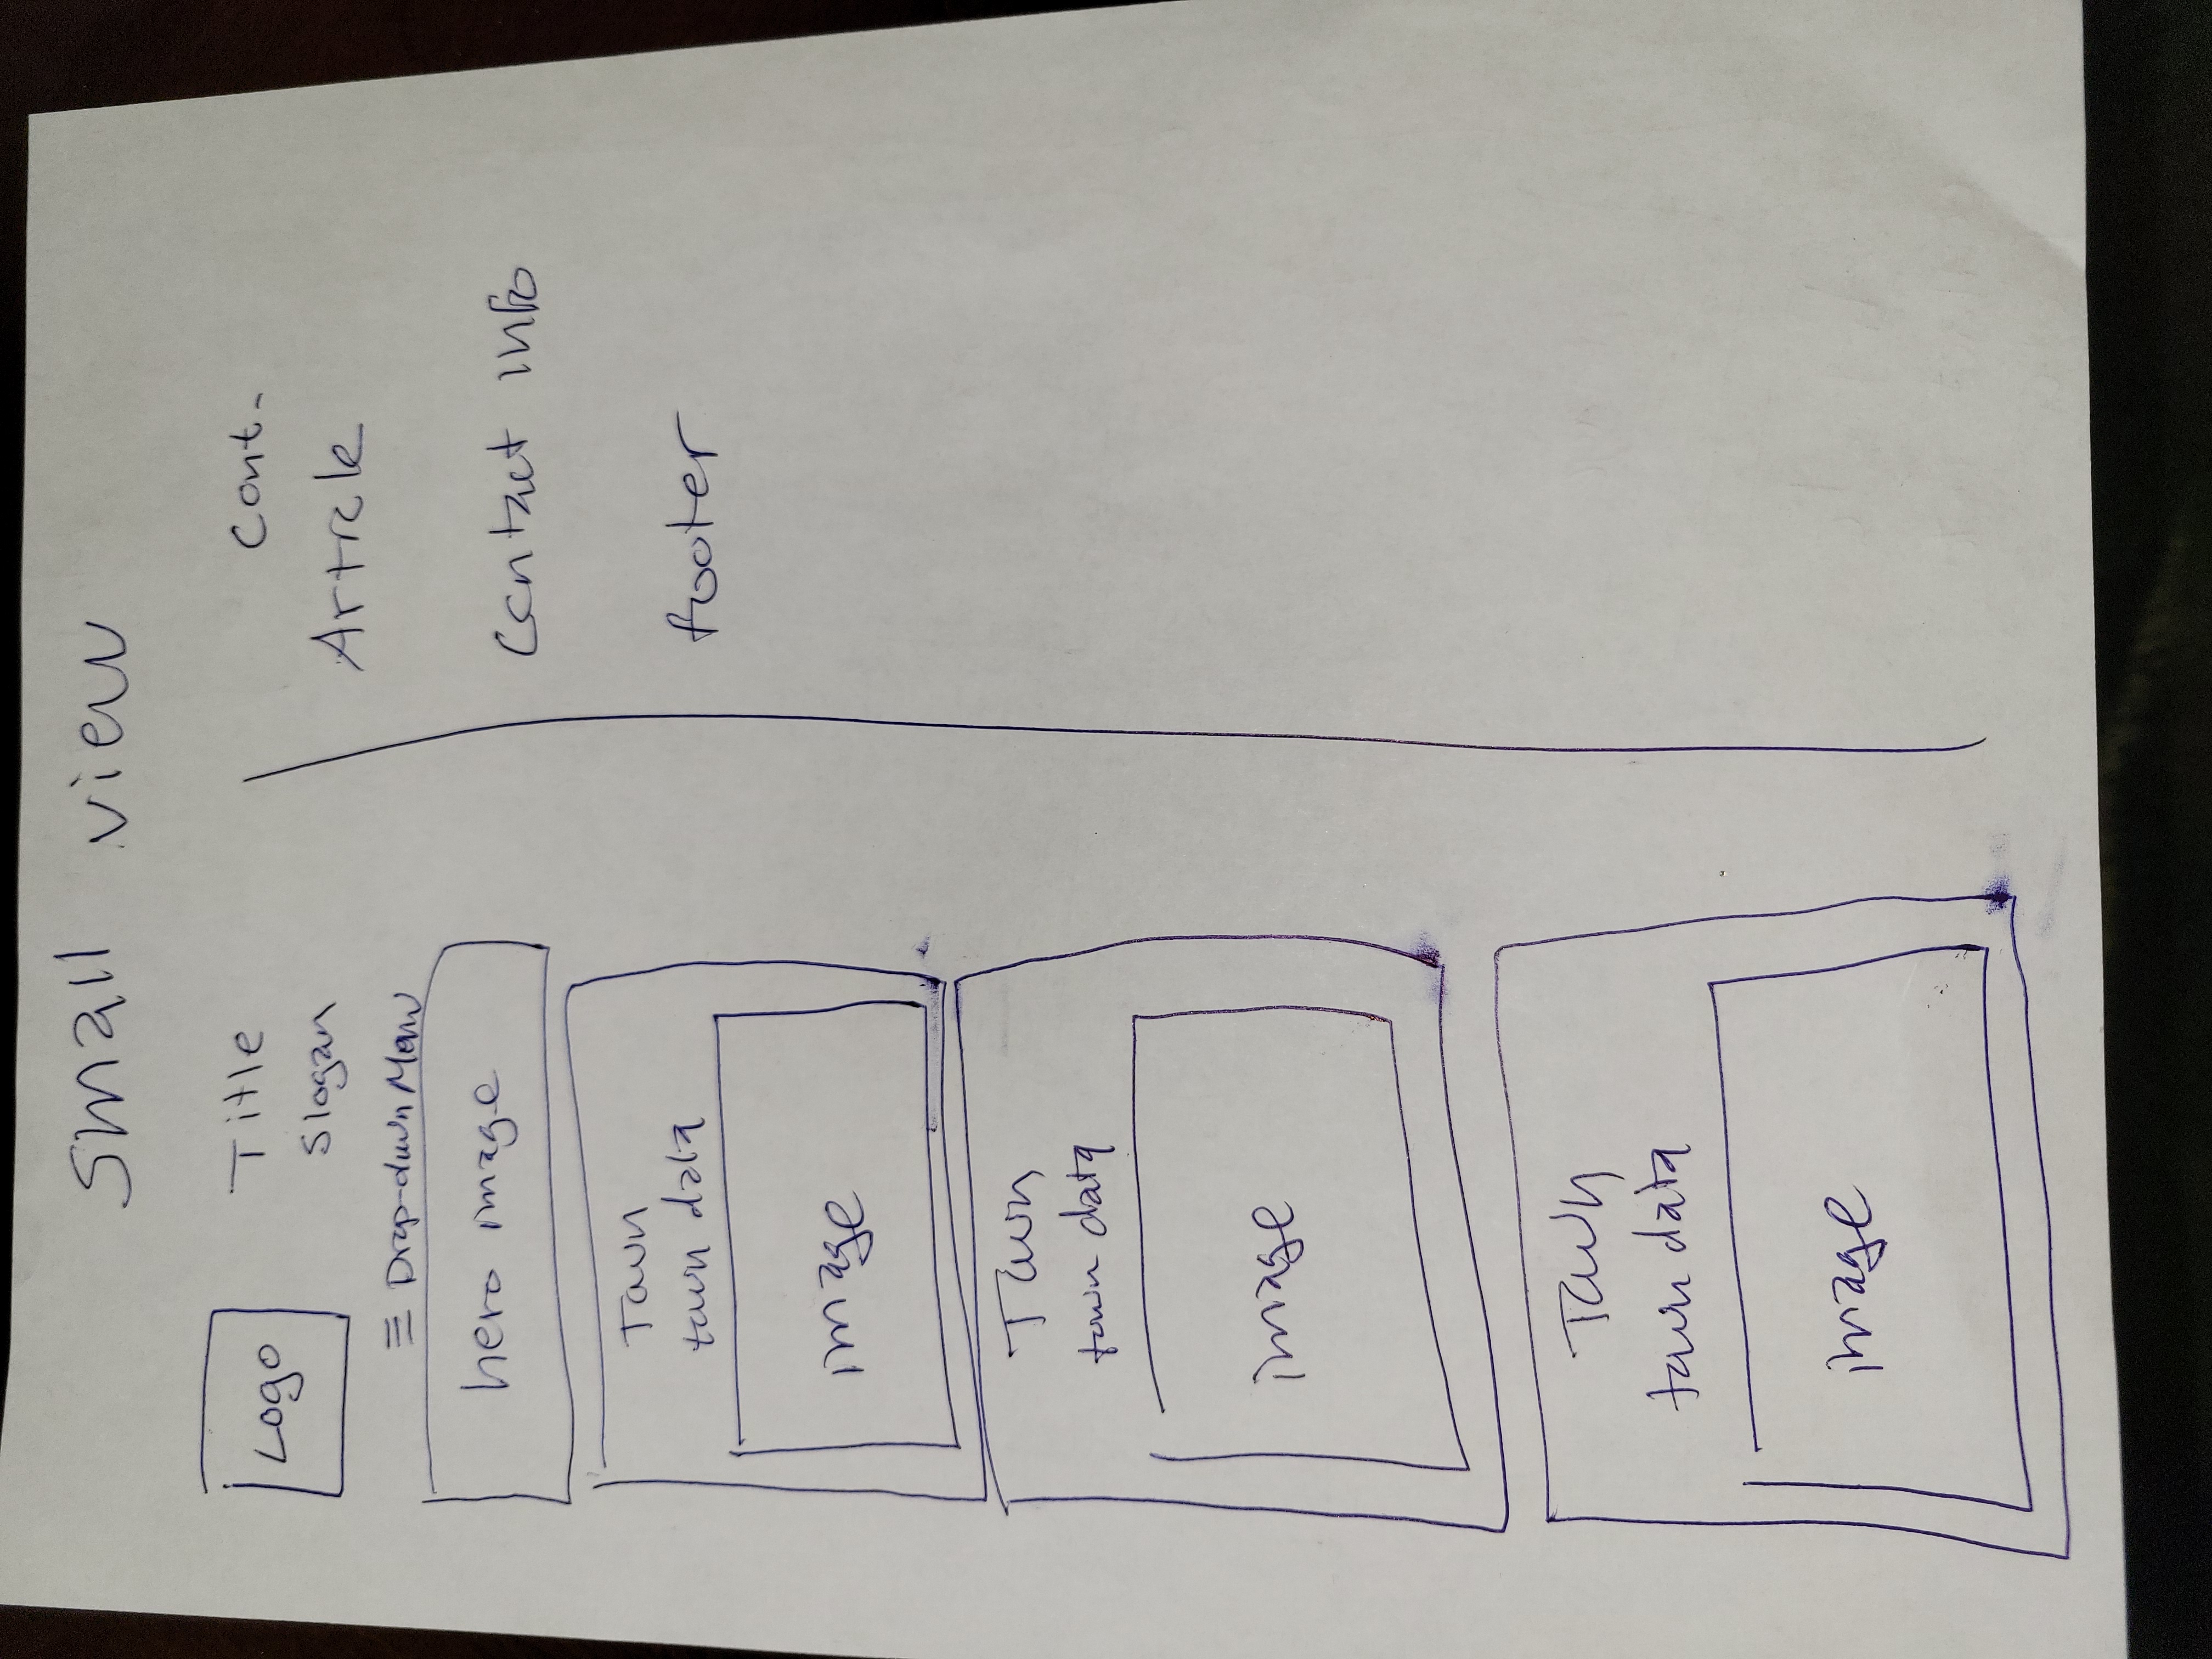 Small view
Logo
Title
Slogan
☰ Drop-down Menu
hero image
Town
town data
image
Town
town data
image
Town
town data
image
Cont.
Article
Contact Info
footer